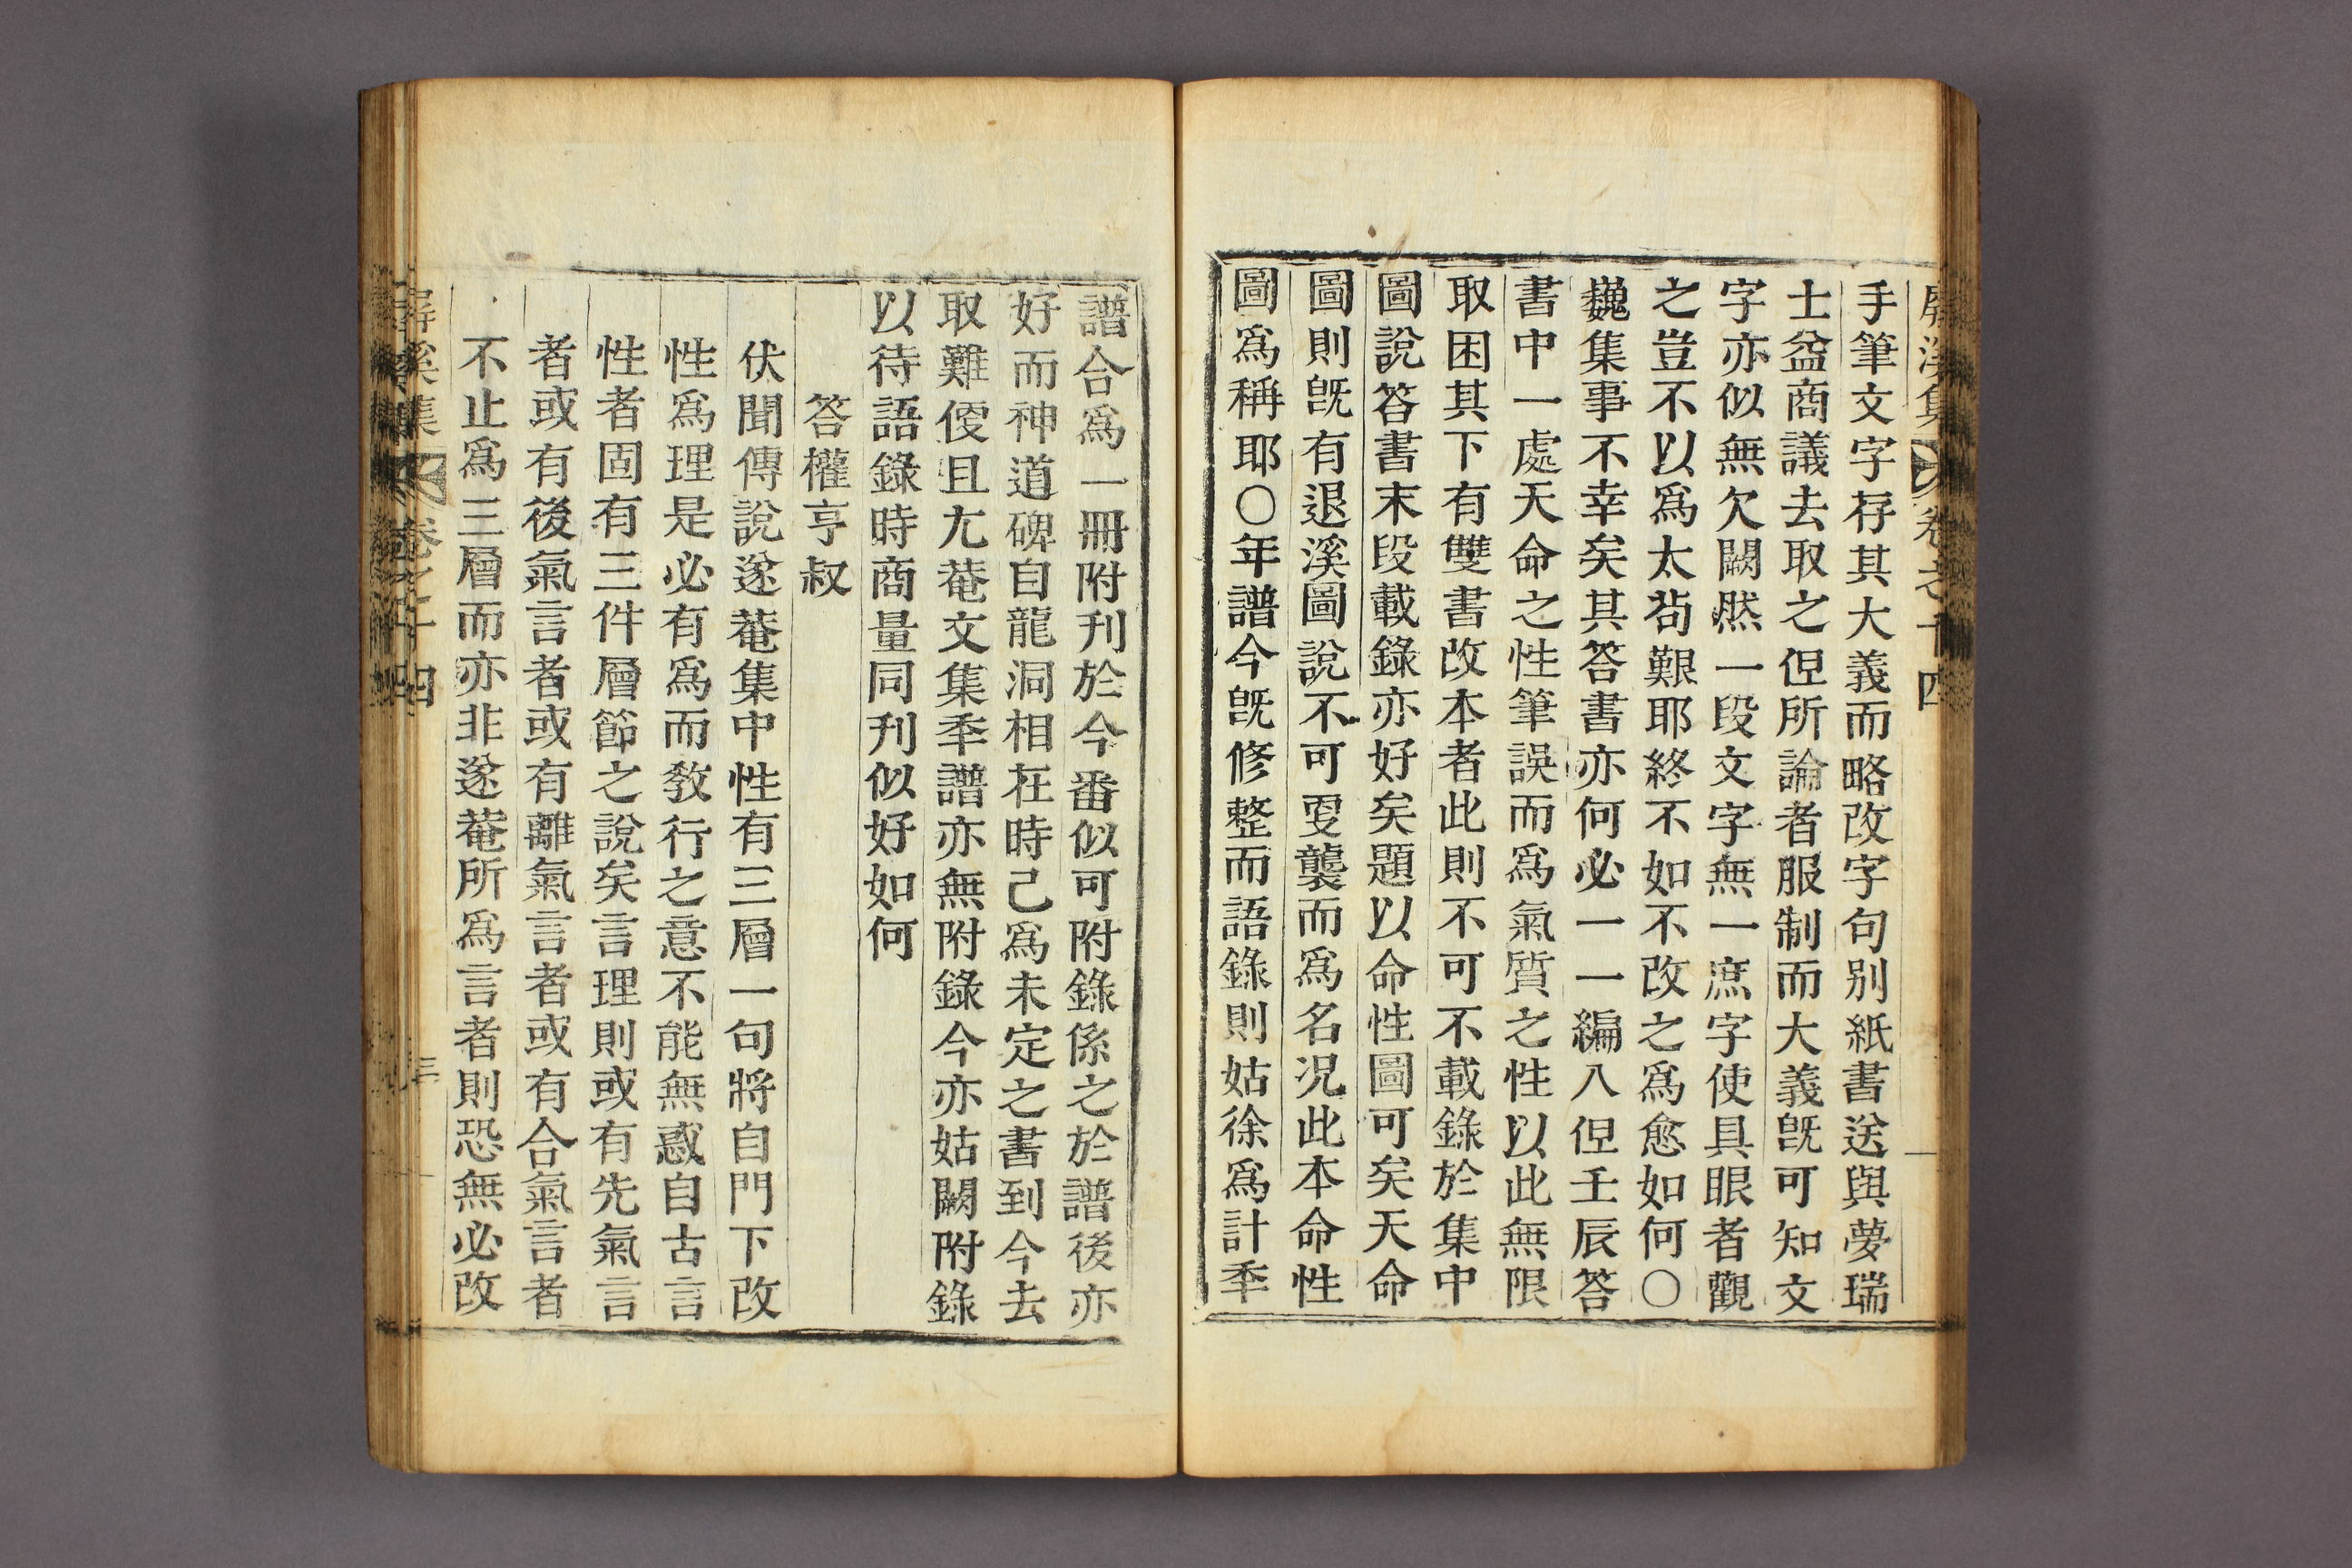 屛溪集 卷之十四
手筆文字存其大義而略改字句別紙書送與夢瑞
士盆商議去取之但所論者服制而大義旣可知文
字亦似無欠闕然一段文字無一庶字使具眼者觀
之豈不以爲太茍艱耶終不如不改之爲愈如何〇
巍集事不幸矣其答書亦何必一一編入但壬辰答
書中一處天命之性筆誤而爲氣質之性以此無限
取困其下有雙書改本者此則不可不載錄於集中
圖說答書末段載錄亦好矣題以命性圖可矣天命
圖則旣有退溪圖說不可叓襲而爲名况此本命性
圖爲稱耶〇年譜今旣修整而語錄則姑徐爲計秊
譜合爲一冊附刊於今番似可附錄係之於譜後亦
好而神道碑自龍洞相在時已爲未定之書到今去
取難便且尢菴文集秊譜亦無附錄今亦姑闕附錄
以待語錄時商量同刊似好如何
答權亨叔
伏聞傳說遂菴集中性有三層一句將自門下改
性爲理是必有爲而敎行之意不能無惑自古言
性者固有三件層節之說矣言理則或有先氣言
者或有後氣言者或有離氣言者或有合氣言者
不止爲三層而亦非遂菴所爲言者則恐無必改
屛溪集 卷之十四 三